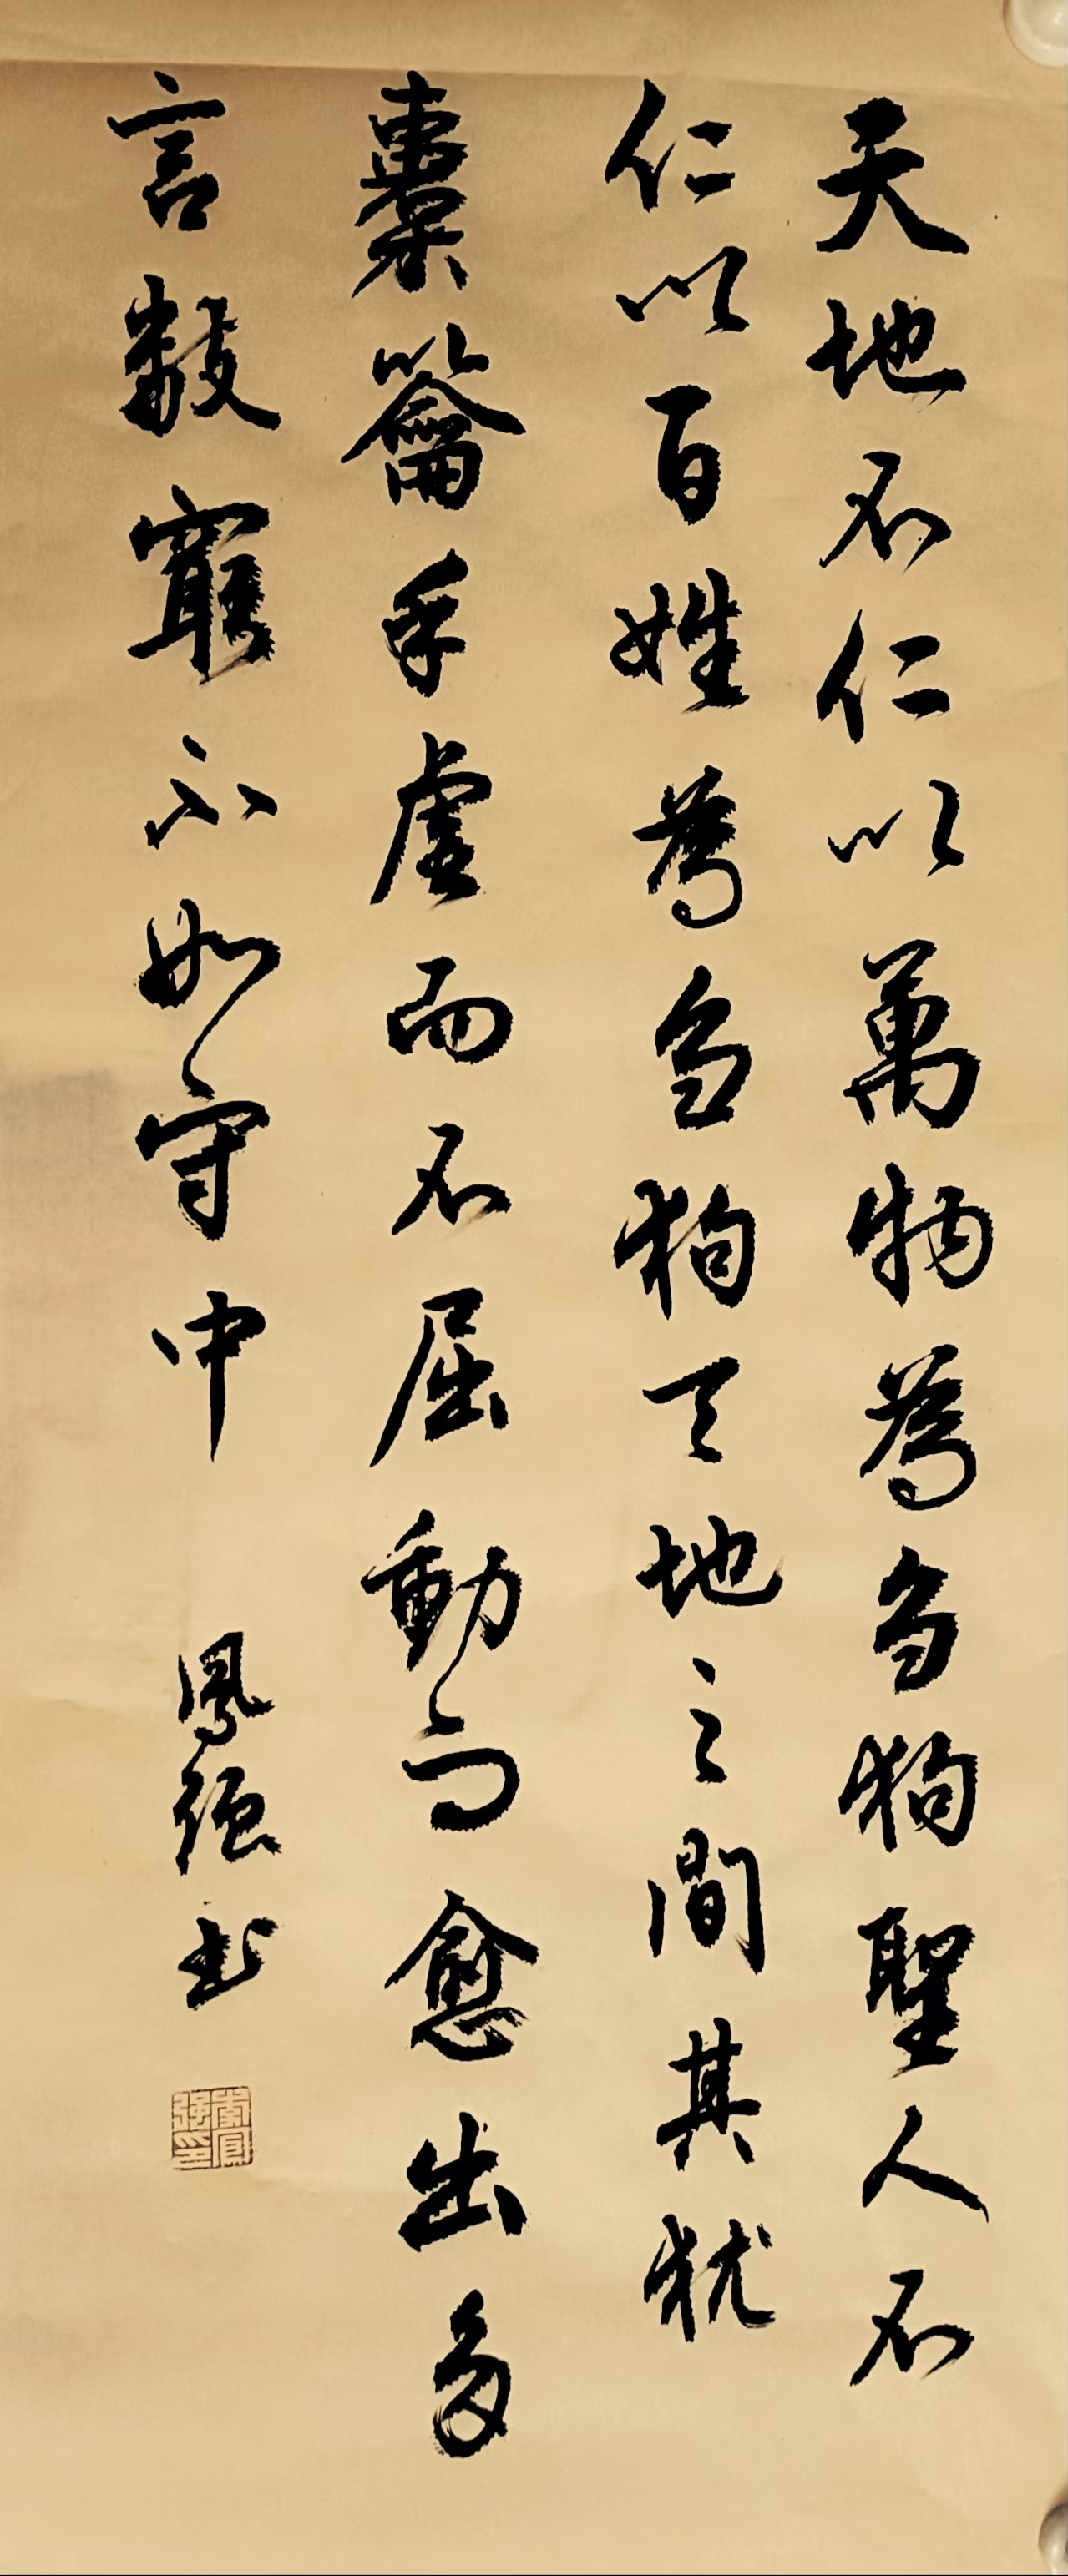 天地不仁以萬物為刍狗聖人不
仁以百姓為刍狗天地之間其犹
橐籥乎虚而不屈動而愈出多
言數窮不如守中
鳳強书